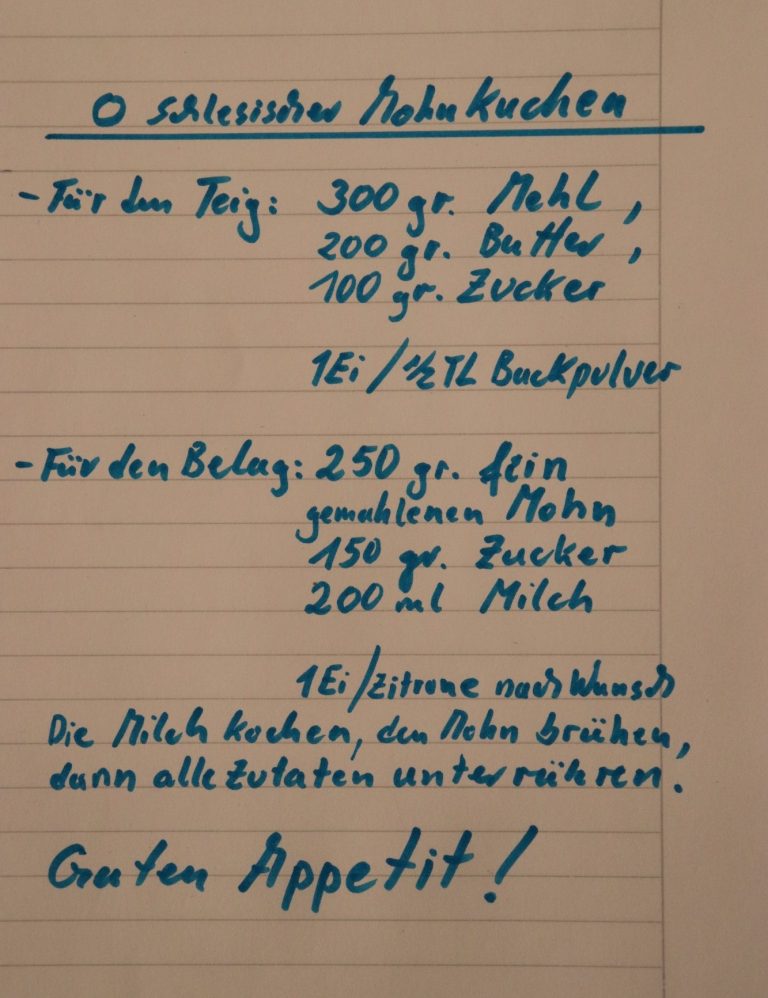 O schlesischer Mohnkuchen
- Für den Teig: 300 gr. Mehl,
200 gr. Butter,
100 gr. Zucker
1Ei / 1/2 TL Backpulver
- Für den Belag: 250 gr. fein
gemahlenen Mohn
150 gr. Zucker
200 ml Milch
1Ei / Zitrone nach Wunsch
Die Milch kochen, den Mohn brühen,
dann alle Zutaten unterrühren.
Guten Appetit!